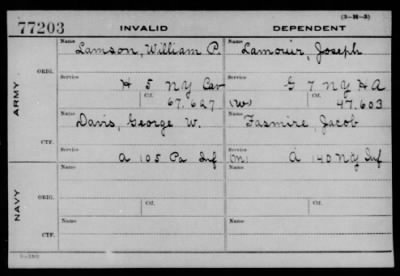 (3—H—3)
77203 INVALID DEPENDENT
Name Name
Lamson, William P. Lamouer, Joseph
ORIG.
Service Service
H 5 NY Cav G 7 NY HA
Ctf. Ctf.
67.627 (W) 47.603
ARMY
Name Name
Davis, George W. Fasmire, Jacob
CTF.
Service
A 105 Pa Inf (M) A 140 NY Inf
Name Name
ORIG.
Service Service
Ctf. Ctf.
NAVY
Name Name
CTF.